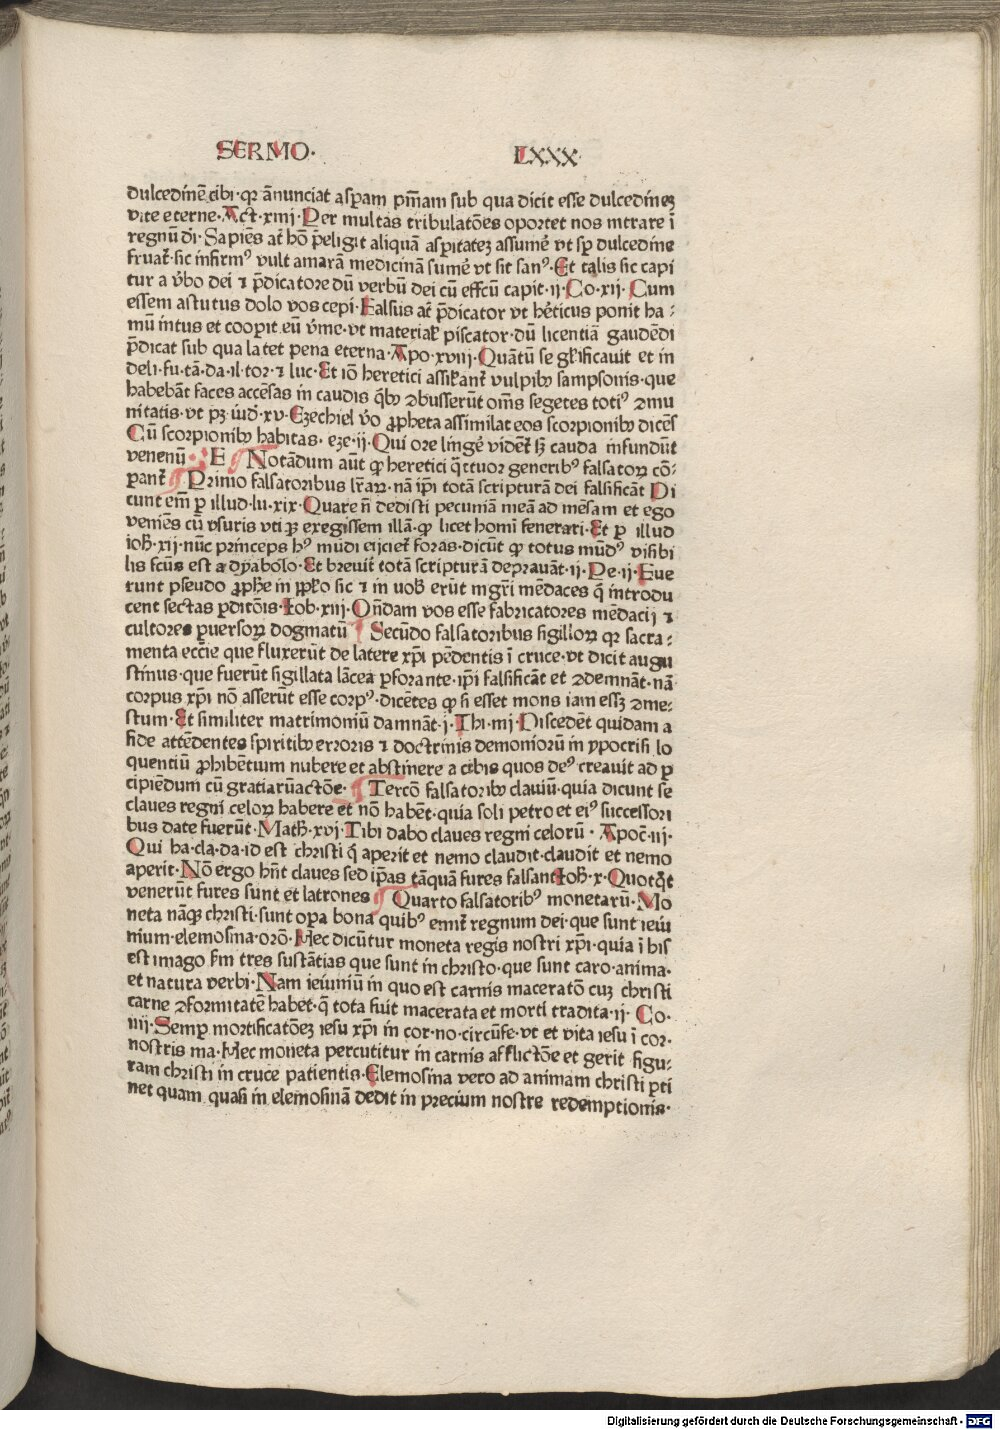 SERMO. LXXX
dulcedinē cibi·qꝛ ānunciat asꝑam pm̄am sub qua dicit esse dulcedineꝫ
vite eterne·Act·xiiij·Per multas tribulatōes oportet nos intrare ī
regnū dei·Sapiēs at̄ hō p̄eligit aliquā asꝑitateꝫ assumē vt sꝑ dulcedine
fruat̄·sic infirmꝰ vult amarā medicinā sumē vt sit sanꝰ·Et talis sic capi
tur a v̄bo dei ⁊ p̄dicatore dū verbū dei cū effcū capit·ij·Co·xij·Cum
essem astutus dolo vos cepi·Falsus at̄ p̄dicator vt hēticus ponit ha⸗
mū intus et cooꝑit eū v̄me·vt material̄ piscator·dū licentiā gaudēdi
p̄dicat sub qua latet pena eterna·Apo·xviij·Quātū se gl̄ificauit et in
deli·fu·tā·da·il·tor·⁊ luc·Et iō heretici assil̄ant̄ vulpibꝫ sampsonis·que
habebāt faces accēsas in caudis q̄bꝫ ꝯbusserūt om̄s segetes totiꝰ ꝯmu
nitatis·vt pꝫ iud̄·xv·Ezechiel v̄o ꝓpheta assimilat eos scorpionibꝫ dicēs
Cū scorpionibꝫ habitas·eze·ij·Qui ore lingē vidēt̄ sꝫ cauda infundūt
venenū· E Notādum aūt ꝙ heretici q̄ttuor generibꝰ falsatoꝝ cō⸗
pant̄ Primo falsatoribus lr̄aꝝ·nā ip̄i totā scripturā dei falsificāt Di
cunt em̄ ꝑ illud·lu·xix·Quare n̄ dedisti pecuniā meā ad mēsam et ego
veniēs cū vsuris vtiqꝫ exegissem illā·ꝙ licet homī fenerari·Et ꝑ illud
ioh̄·xij·nūc princeps hꝰ mūdi eijciet̄ foras·dicūt ꝙ totus mūdꝰ visibi
lis fcūs est a dyabolo·Et breuit̄ totā scripturā deprauāt·ij·Pe·ij·Fue
runt pseudo ꝓphe in ipplo sic ⁊ in vob̄ erūt mgr̄i mēdaces q̄ introdu
cent sectas ꝑditōis·Iob·xiij·Ōn̄dam vos esse fabricatores mēdacij ⁊
cultores ꝑuersoꝝ dogmatū Secūdo falsatoribus sigilloꝝ qꝛ sacra⸗
menta ecc̄ie que fluxerūt de latere xp̄i pēdentis ī cruce·vt dicit augu
stinus·que fuerūt sigillata lācea ꝑforante·ip̄i falsificāt et ꝯdemnāt·nā
corpus xp̄i nō asserūt esse corpꝰ·dicētes ꝙ si esset mons iam essꝫ ꝯme⸗
stum·Et similiter matrimoniū damnāt·j·Thi·iiij·Discedēt quidam a
fide attēdentes spiritibꝫ erroris ⁊ doctrinis demoniorū in ypocrisi lo
quentiū ꝓhibentium nubere et abstinere a cibis quos deꝰ creauit ad ꝑ
cipiēdum cū gratiarūactōe· Tercō falsatoribꝫ clauiū·quia dicunt se
claues regni celoꝝ habere et nō habēt·quia soli petro et eiꝰ successori
bus date fuerūt·Math̄·xvj·Tibi dabo claues regni celorū· Apoc̄·iij·
Qui ha·cla·da·id est christi q̄ aperit et nemo claudit·claudit et nemo
aperit·Nō ergo hn̄t claues sed ip̄as tāquā fures falsant·Ioh̄·x·Quotq̄t
venerūt fures sunt et latrones Quarto falsatoribꝰ monetarū·Mo
neta nāqꝫ christi·sunt oꝑa bona quibꝰ emit̄ regnum dei·que sunt ieiu
nium·elemosina·orō·Hec dicūtur moneta regis nostri xp̄i·quia ī his
est imago scd̄m tres sustātias que sunt in christo·que sunt caro·anima·
et natura verbi·Nam ieiuniū in quo est carnis maceratō cuꝫ christi
carne ꝯformitatē habet·q̄ tota fuit macerata et morti tradita·ij· Co·
iiij·Semꝑ mortificatōeꝫ iesu xp̄i in cor·no·circūfe·vt et vita iesu ī cor·
nostris ma·Hec moneta percutitur in carnis afflictōe et gerit figu⸗
ram christi in cruce patientis·Elemosina vero ad animam christi ꝑti
net quam quasi in elemosinā dedit in precium nostre redemptionis·
Digitalisierung gefördert durch die Deutsche Forschungsgemeinschaft - DFG